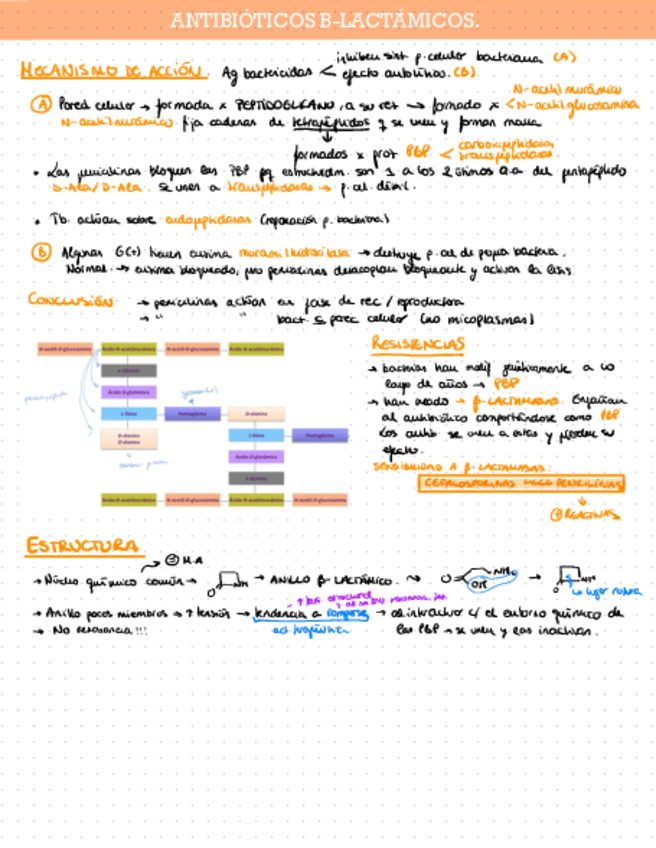 ANTIBIÓTICOS B-LACTÁMICOS.
MECANISMO DE ACCIÓN. Ag bactericidas < inhiben sínt p. celular bacteriana (A)
efecto autolítico. (B)
(A) Pared celular → formada x PEPTIDOGLICANO, a su vez → formado x < N-acetil murámico
N-acetil glucosamina
N-acetil murámico fija cadenas de tetrapéptidos q se unen y forman malla
formados x prot PBP < carboxipeptidasas
transpeptidasas.
• Las penicilinas bloquean las PBP pq estructuralm. son = a los 2 últimos aa del pentapéptido
D-Ala/D-Ala. Se unen a transpeptidasas → p. cel. débil.
• Tb. actúan sobre endopeptidasas (reparación p. bacteriana)
(B) Algunas G(+) tienen enzima muramil hidrolasa → destruye p. cel de propia bacteria.
Normal. → enzima bloqueada, pero penicilinas desacoplan bloqueante y activan la lisis.
CONCLUSIÓN: → penicilinas actúan en fase de rec / reproductora
→ " " bact c pared celular (no micoplasmas)
N-acetil-D-glucosamina Ácido N-acetilmurámico N-acetil-D-glucosamina Ácido N-acetilmurámico
L-alanina
Ácido D-glutámico
L-lisina Pentaglicina D-alanina
D-alanina
D-alanina
L-lisina Pentaglicina
Ácido D-glutámico
L-alanina
Ácido N-acetilmurámico N-acetil-D-glucosamina Ácido N-acetilmurámico N-acetil-D-glucosamina
RESISTENCIAS
→ bacterias han modif genéticamente a lo
largo de años → PBP
→ han creado → β-LACTAMASAS. Engañan
al antibiótico comportándose como PBP
Los antib. se unen a estas y pierden su
efecto.
SENSIBILIDAD A β-LACTAMASAS:
CEFALOSPORINAS <<<< PENICILINAS
(+) REACTIVAS
ESTRUCTURA
→ Núcleo químico común → ANILLO β-LACTÁMICO.
→ Anillo pocos miembros → ↑ tensión → tendencia a romperse → al interactuar c/ el entorno químico de
→ No resonancia!!! las PBP → se unen y las inactivan.